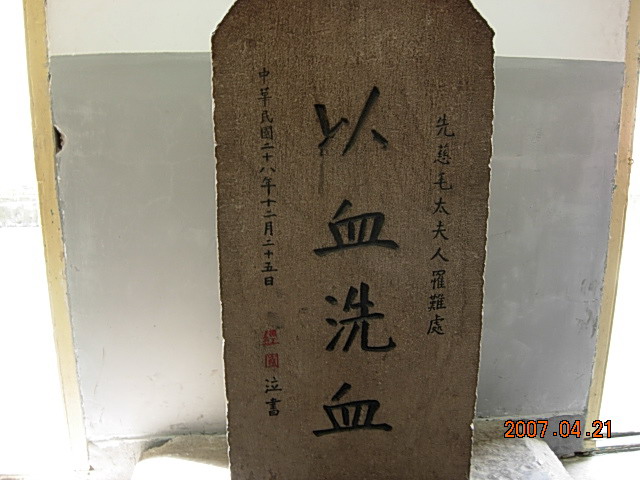 先慈毛太夫人罹難處
以血洗血
中華民國二十八年十二月二十五日
經國泣書
2007.04.21